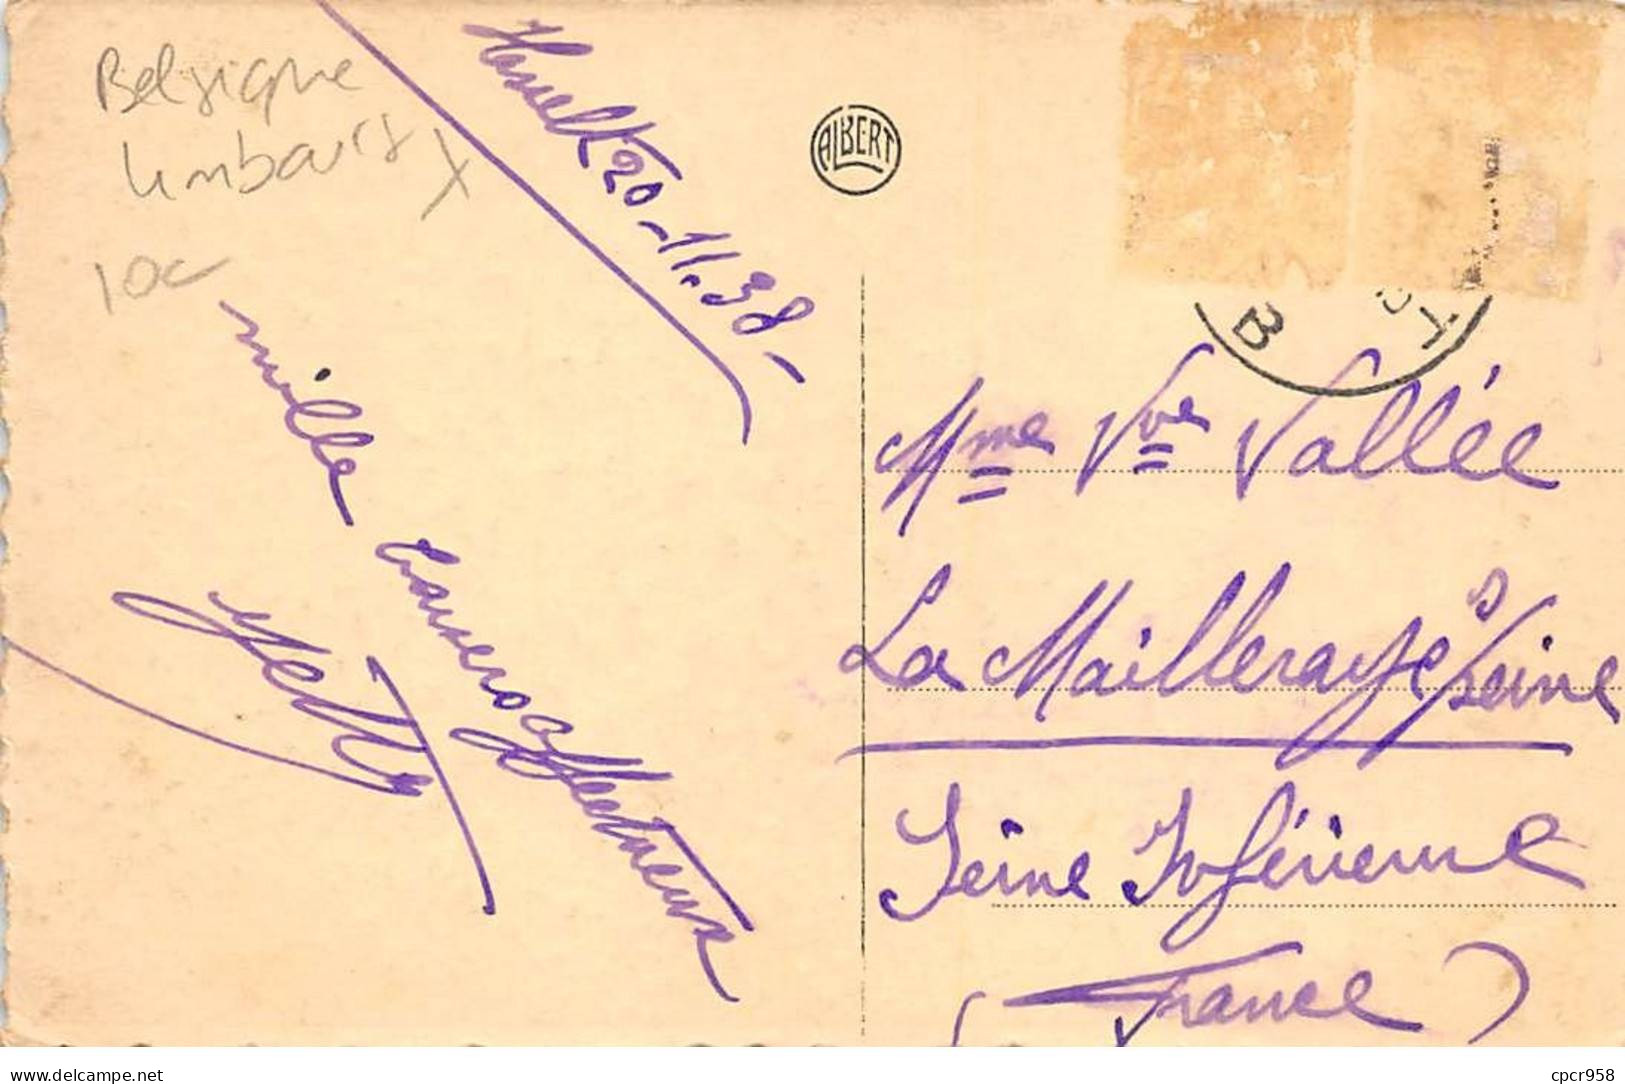 Belgique
Limbourg X
10c
Hasselt 20-11.38-
mille
baisers affectueux
ALBERT
B
T
Mme Vve Vallée
La Mailleraye s/Seine
Seine Inférieure
(France)
www.delcampe.net
cpcr958